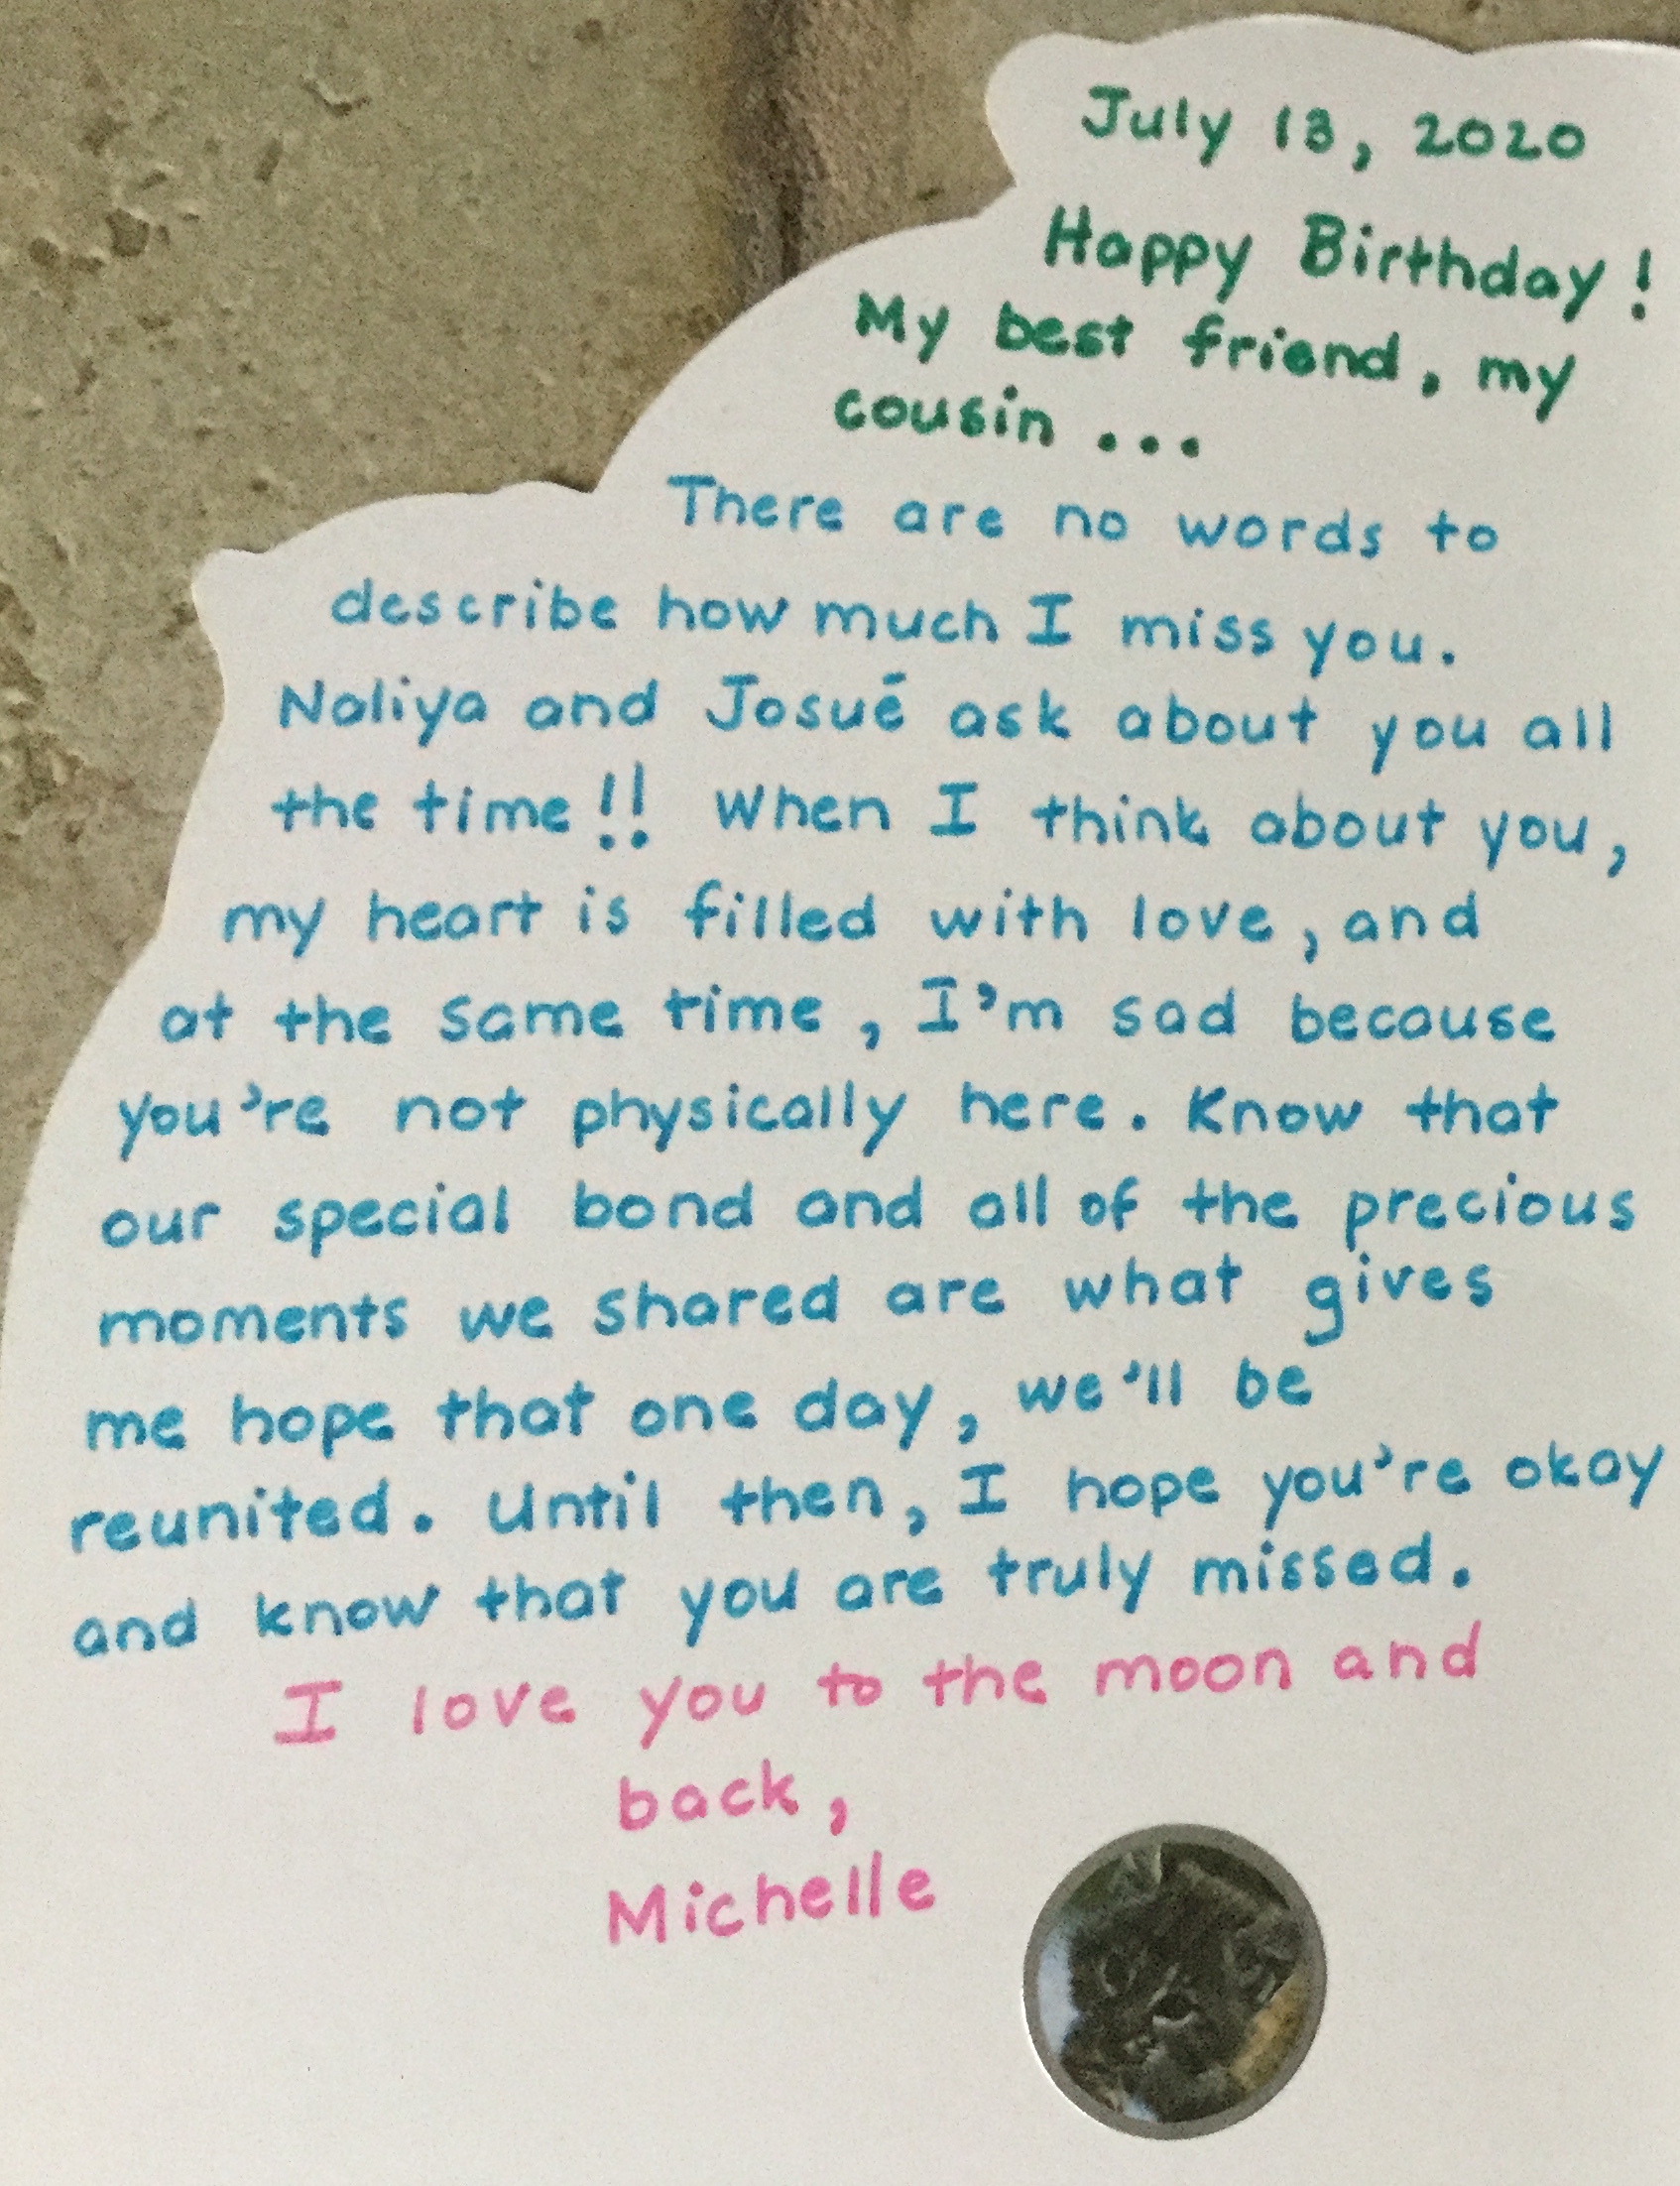 July 13, 2020
Happy Birthday!
My best friend, my
cousin ...
There are no words to
describe how much I miss you.
Naliya and Josué ask about you all
the time!! When I think about you,
my heart is filled with love, and
at the same time, I'm sad because
you're not physically here. Know that
our special bond and all of the precious
moments we shared are what gives
me hope that one day, we'll be
reunited. Until then, I hope you're okay
and know that you are truly missed.
I love you to the moon and
back,
Michelle